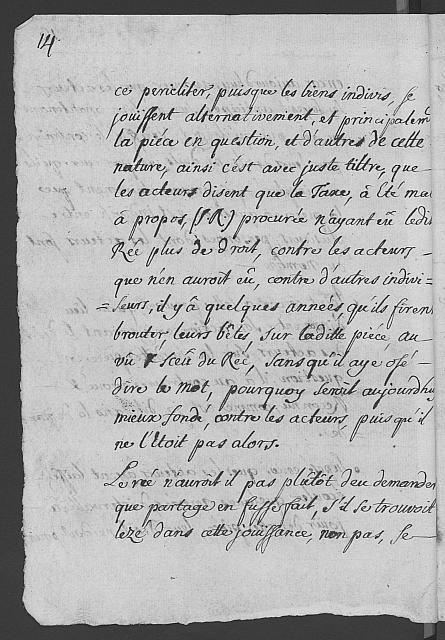 14
ce pericliter, puisque les biens indivis, se
jouissent alternativement, et principalem
la piéce en question, et d'autres de cette
nature, ainsi c'est avec juste tiltre, que
les acteurs disent que la Taxe, à Eté mal
à propos, (S.R.) procurée n'ayant eû ledit
Rée plus de droit, contre les acteurs -
que n'en auroit eû, contre d'autres indivi=
=seurs, il y à quelques années, qu'ils firent
brouter, leurs bêtes, sur ladite piéce, au
vû & sceû du Rée, sans qu'il aye osé -
dire le mot, pourquoy seroit aujourdhuy
mieux fondé, contre les acteurs, puis qu'il
ne l'Etoit pas alors.
Le rée n'auroit il pas plûtôt deu demander
que partage en fusse fait, s'il se trouvoit
lezé dans cette jouissance, non pas, se